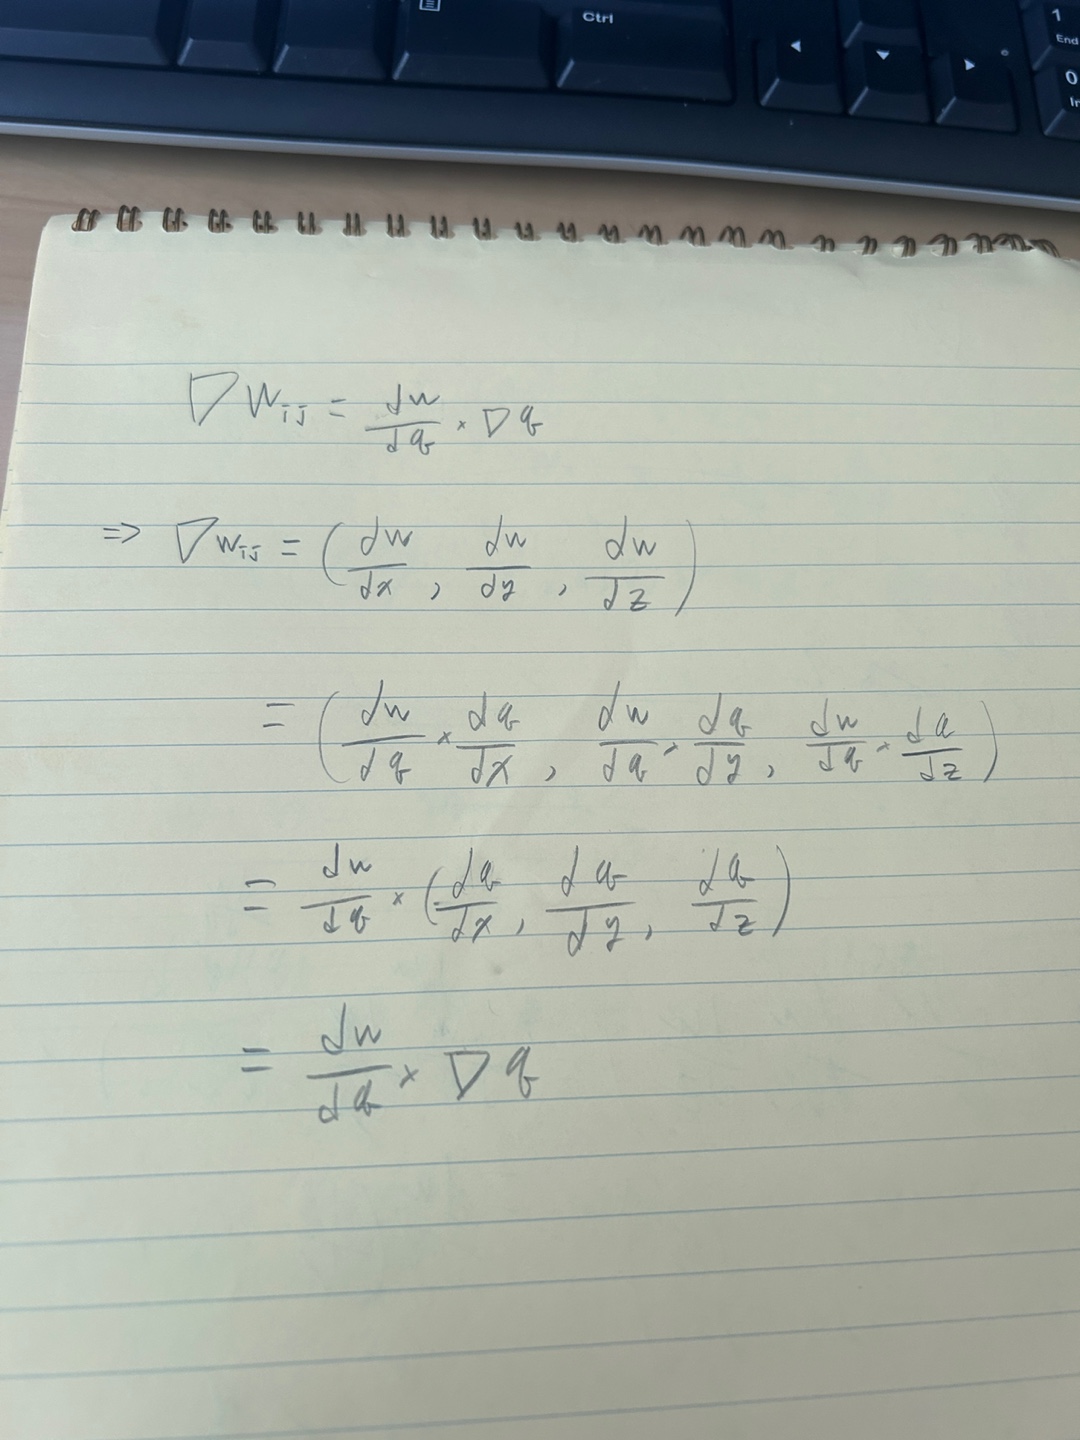 Ctrl
1
End
0
In
∇W_ij = dw/dq × ∇q
=> ∇w_ij = (dw/dx, dw/dy, dw/dz)
= (dw/dq × dq/dx, dw/dq × dq/dy, dw/dq × dq/dz)
= dw/dq × (dq/dx, dq/dy, dq/dz)
= dw/dq × ∇q